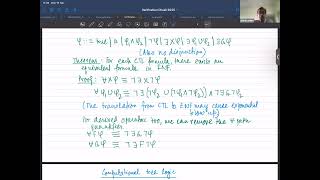 φ ::= true | a | φ₁∧φ₂ | ¬φ | ∃Xφ | ∃φ₁Uφ₂ | ∃Gφ
(Also no disjunction)
Theorem: For each CTL formula, there exists an
equivalent formula in ENF.
Proof: ∀Xφ ≡ ¬∃X¬φ
∀φ₁Uφ₂ ≡ ¬∃(¬φ₂ U (¬φ₁∧¬φ₂)) ∧ ¬∃G¬φ₂
(The translation from CTL to ENF may cause exponential
blow up)
For derived operator too, we can remove the ∀ path
quantifier.
∀Fφ ≡ ¬∃G¬φ
∀Gφ ≡ ¬∃F¬φ
Computational tree logic